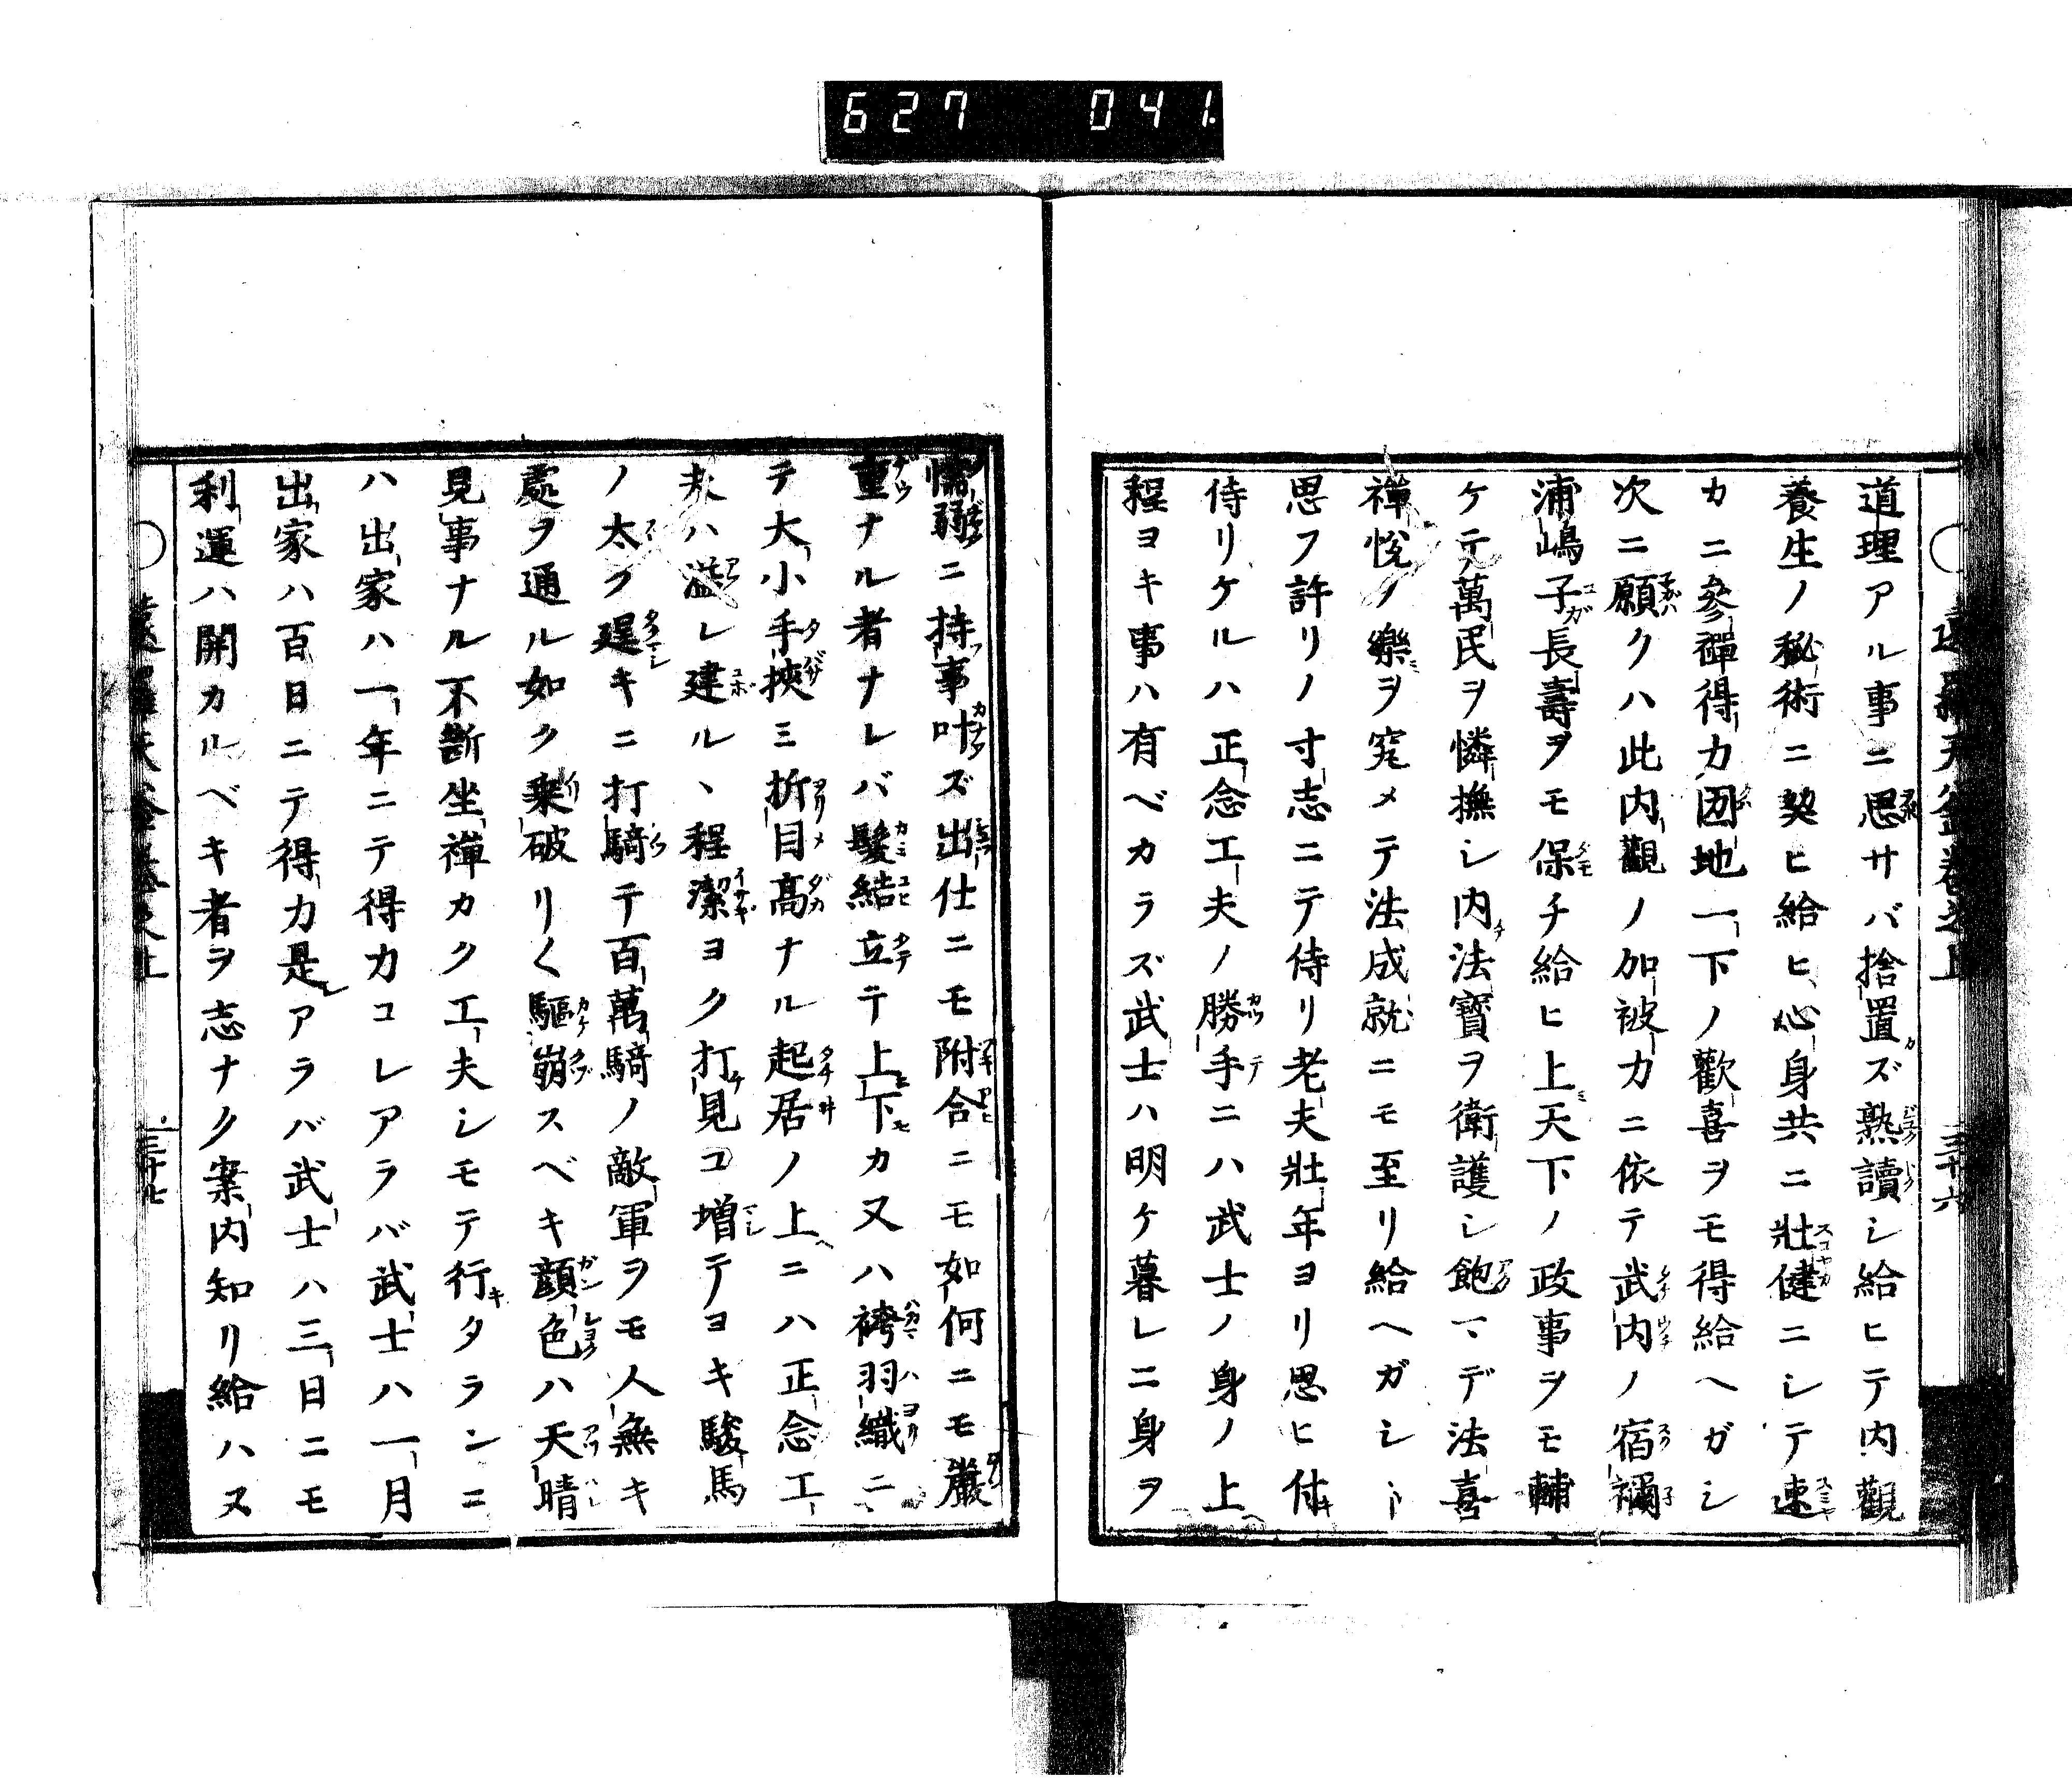 627 041
道理アル事ニ思サバ捨置ズ熟讀シ給ヒテ内觀
養生ノ秘術ニ契ヒ給ヒ心身共ニ壯健ニシテ速
カニ參禪得力囡地一下ノ歡喜ヲモ得給ヘガシ
次ニ願クハ此内觀ノ加被力ニ依テ武内ノ宿禰
浦嶋子ガ長壽ヲモ保チ給ヒ上天下ノ政事ヲモ輔
ケテ萬民ヲ憐撫シ内法寳ヲ衛護シ飽マデ法喜
禪悦ノ樂ヲ究メテ法成就ニモ至リ給ヘガシト
思フ許リノ寸志ニテ侍リ老夫壯年ヨリ思ヒ付
侍リケルハ正念工夫ノ勝手ニハ武士ノ身ノ上
程ヨキ事ハ有ベカラズ武士ハ明ケ暮レニ身ヲ
懦弱ニ持事叶ズ出仕ニモ附合ニモ如何ニモ嚴
重ナル者ナレバ髮結立テ上下カ又ハ袴羽織ニ
テ大小手挾ミ折目高ナル起居ノ上ニハ正念工
夫ハ溢レ建ルヽ程潔ヨク打見コ増テヨキ駿馬
ノ太ク逞キニ打騎テ百萬騎ノ敵軍ヲモ人無キ
處ヲ通ル如ク乗破リ〱驅崩スベキ顔色ハ天晴
見事ナル不斷坐禪カク工夫シモテ行タランニ
ハ出家ハ一年ニテ得力コレアラバ武士ハ一月
出家ハ百日ニテ得力是レアラバ武士ハ三日ニモ
利運ハ開カルベキ者ヲ志ナク案内知リ給ハヌ